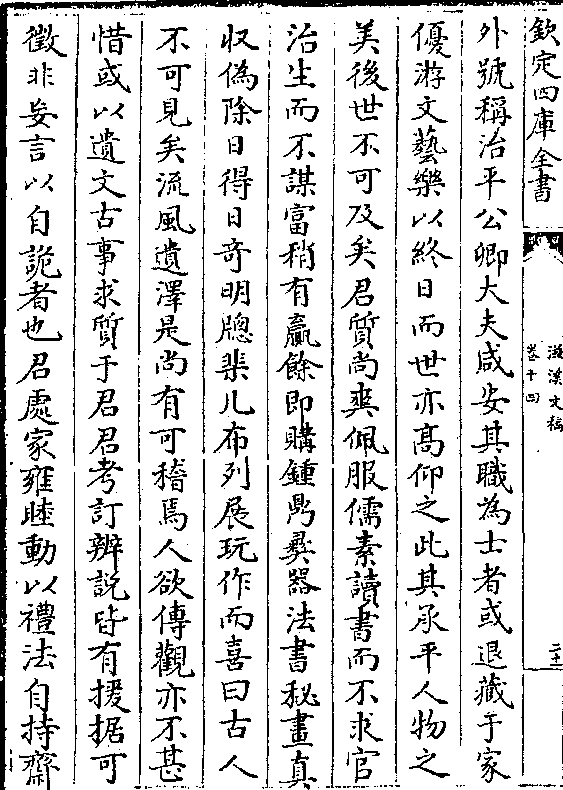 欽定四庫全書
灤溪文稿
卷十四
二十
外號稱治平公卿大夫咸安其職為士者或退藏于家
優游文藝樂以終日而世亦髙仰之此其承平人物之
美後世不可及矣君質尚爽佩服儒素讀書而不求官
治生而不謀富稍有贏餘即購鍾鼎彝器法書秘畫真
収偽除日得日竒明牕棐几布列展玩作而喜曰古人
不可見矣流風遺澤是尚有可稽焉人欲傳觀亦不甚
惜或以遺文古事求質于君君考訂辨說皆有援据可
徵非妄言以自詭者也君處家雍睦動以禮法自持齋